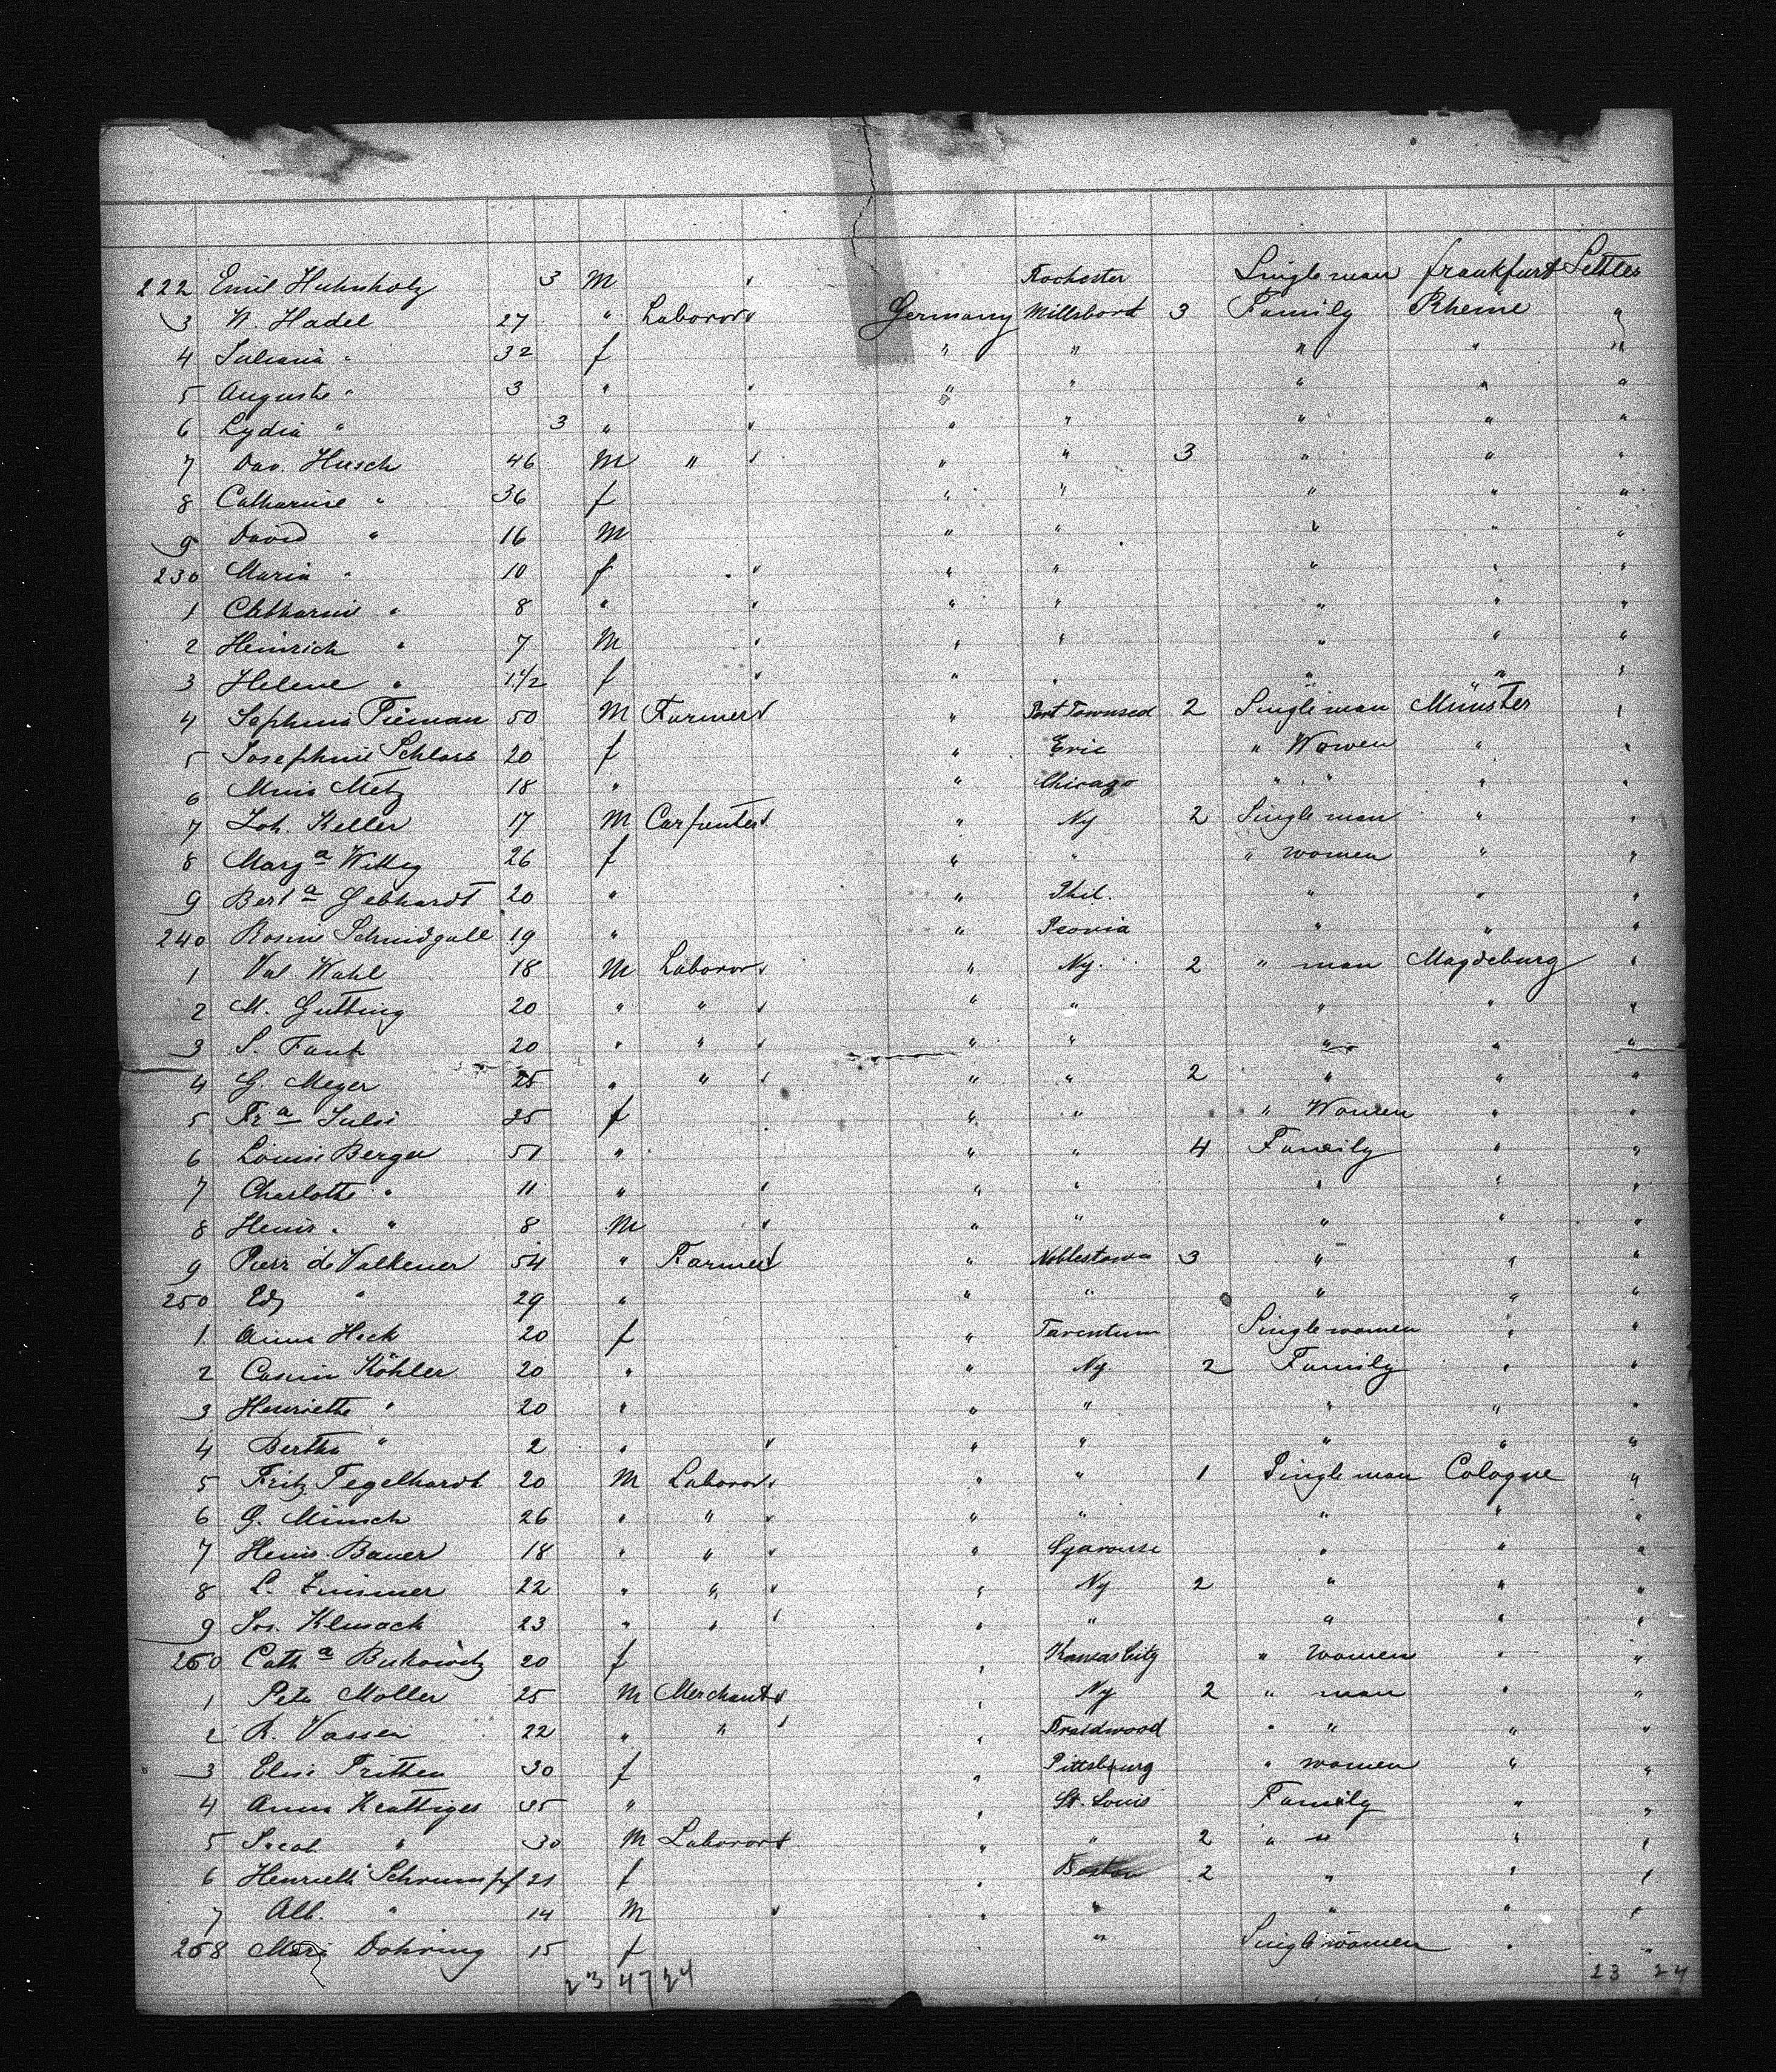 222 Emil Huhnholz 3 M Rochester Single man Frankfurt Settler
3 W. Hadel 27 " Laboror Germany Millsbord 3 Family Rheine "
4 Juliana " 32 f " " " " "
5 Auguste " 3 " " " " " "
6 Lydia " 3 " " " " " "
7 Dav. Husch 46 M " " " 3 " " "
8 Catharine " 36 f " " " " "
9 David " 16 M " " " " "
230 Maria " 10 f " " " " "
1 Catharine " 8 " " " " " "
2 Heinrich " 7 M " " " " "
3 Helene " 1 1/2 f " " " " "
4 Sophima Tieman 50 M Farmer " Port Townsed 2 Single man Münster "
5 Josephine Schloss 20 f " Erie " Wowen " "
6 Mina Metz 18 " " Chicago " " " "
7 Joh. Keller 17 M Carpenter " Ny 2 Single man " "
8 Marga Wittig 26 f " " " women " "
9 Berta Gebhardt 20 " " Phil. " " "
240 Rosine Schmidgall 19 " " Peoria " " "
1 Val. Wahl 18 M Laboror " Ny. 2 " man Magdeburg "
2 M. Gutting 20 " " " " " " "
3 S. Fank 20 " " " " " " "
4 G. Meyer 25 " " " " 2 " " "
5 Fra Julsi 25 f " " " Women " "
6 Louise Berger 51 " " " 4 Family " "
7 Charlotte " 11 " " " " " "
8 Henr. " 8 M " " " " "
9 Pierr de Valkener 54 " Farmer " Noblestown 3 " " "
250 Edj " 29 " " " " " "
1 Anna Heck 20 f " Tarentum Single women " "
2 Casim Köhler 20 " " Ny. 2 Family " "
3 Henriette " 20 " " " " " "
4 Bertha " 2 " " " " " "
5 Fritz Tegelhardt 20 M Laboror " " 1 Single man Cologne "
6 G. Minsch 26 " " " " " " "
7 Henr. Bauer 18 " " " Syarcuse " " "
8 L. Zimmer 22 " " " Ny 2 " " "
9 Jos. Klimack 23 " " " " " " "
260 Catha Bukowitz 20 f " Kansas City " women " "
1 Pete Moller 25 M Merchant " Ny 2 " man " "
2 R. Vassen 22 " " " Braidwood " " " "
3 Elise Tritten 30 f " Pittsburg " women " "
4 Anna Krattiges 35 " " St. Louis Family " "
5 Jacob " 30 M Laboror " " 2 " " " "
6 Henriette Schrumpf 21 f " Boston 2 " " "
7 Alb. " 14 M " " " " "
268 Marie Dohring 15 f " " Single women " "
23 47 24 23 24